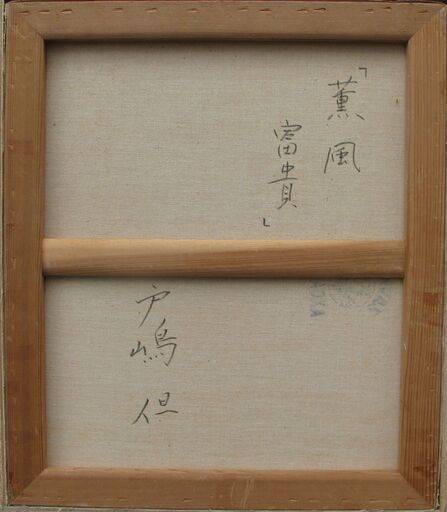 「薫風
富貴」
戸嶋 但